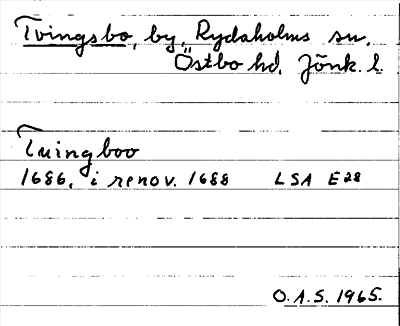 Tvingsbo, by, Rydaholms sn.
Östbo hd. Jönk. l.
Tuingboo
1686, i renov. 1688 LSA E28
O.A.S. 1965.